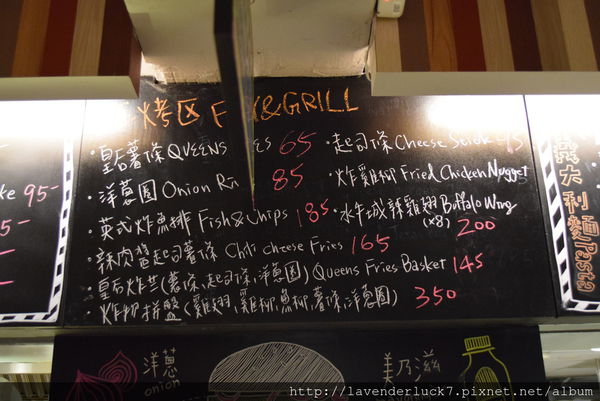 烤区 F &GRILL
・皇后薯條 QUEENS es 65
・洋蔥圈 Onion Ri 85
・英式炸魚排 Fish&Chips 185
・辣肉醬起司薯條 Chili cheese Fries 165
・皇后炸蓝(薯條、起司條、洋蔥圈) Queens Fries Basket 145
・炸物拼盤(雞翅、雞柳、魚柳、薯條、洋蔥圈) 350
・起司條 Cheese Stick
・炸雞柳 Fried Chicken Nugget
・水牛城辣雞翅 Buffalo Wing
(x8) 200
ke 95-
義大利麵 Pasta
洋蔥
onion
美乃滋
http://lavenderluck7.pixnet.net/album